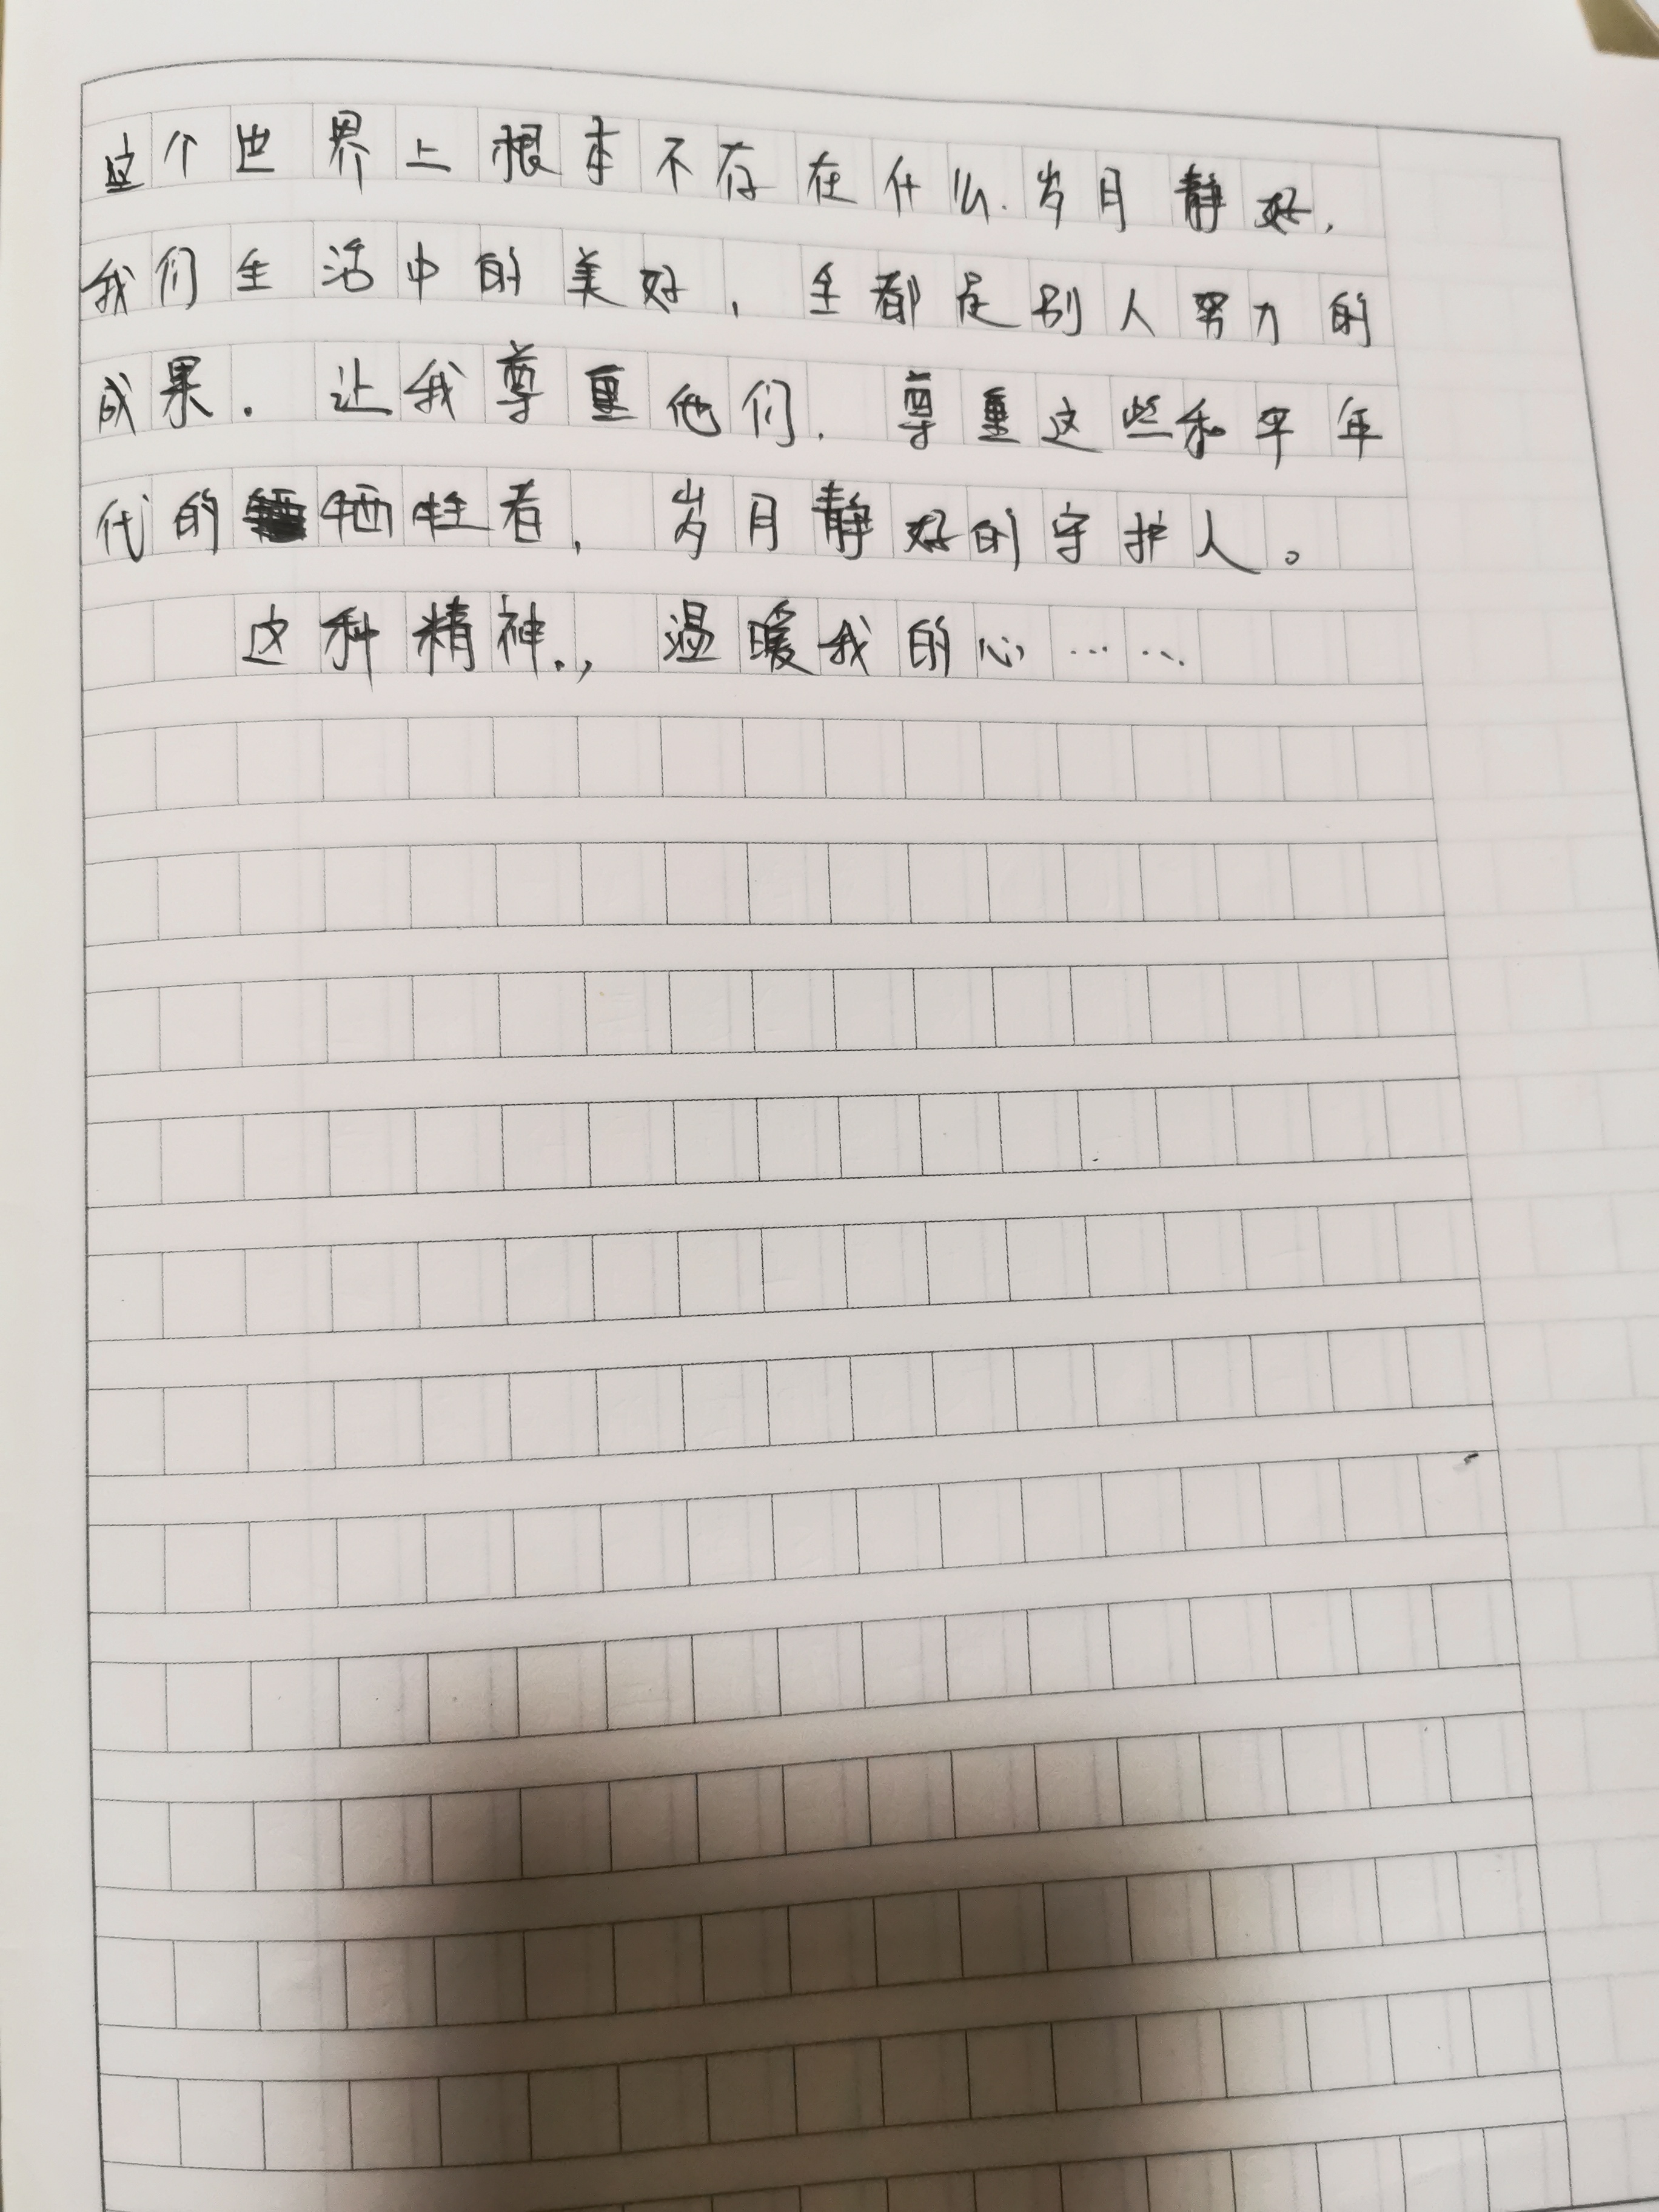 这个世界上根本不存在什么岁月静好，
我们生活中的美好，全都是别人努力的
成果．让我尊重他们．尊重这些和平年
代的牺牲者，岁月静好的守护人。
这种精神．，温暖我的心……